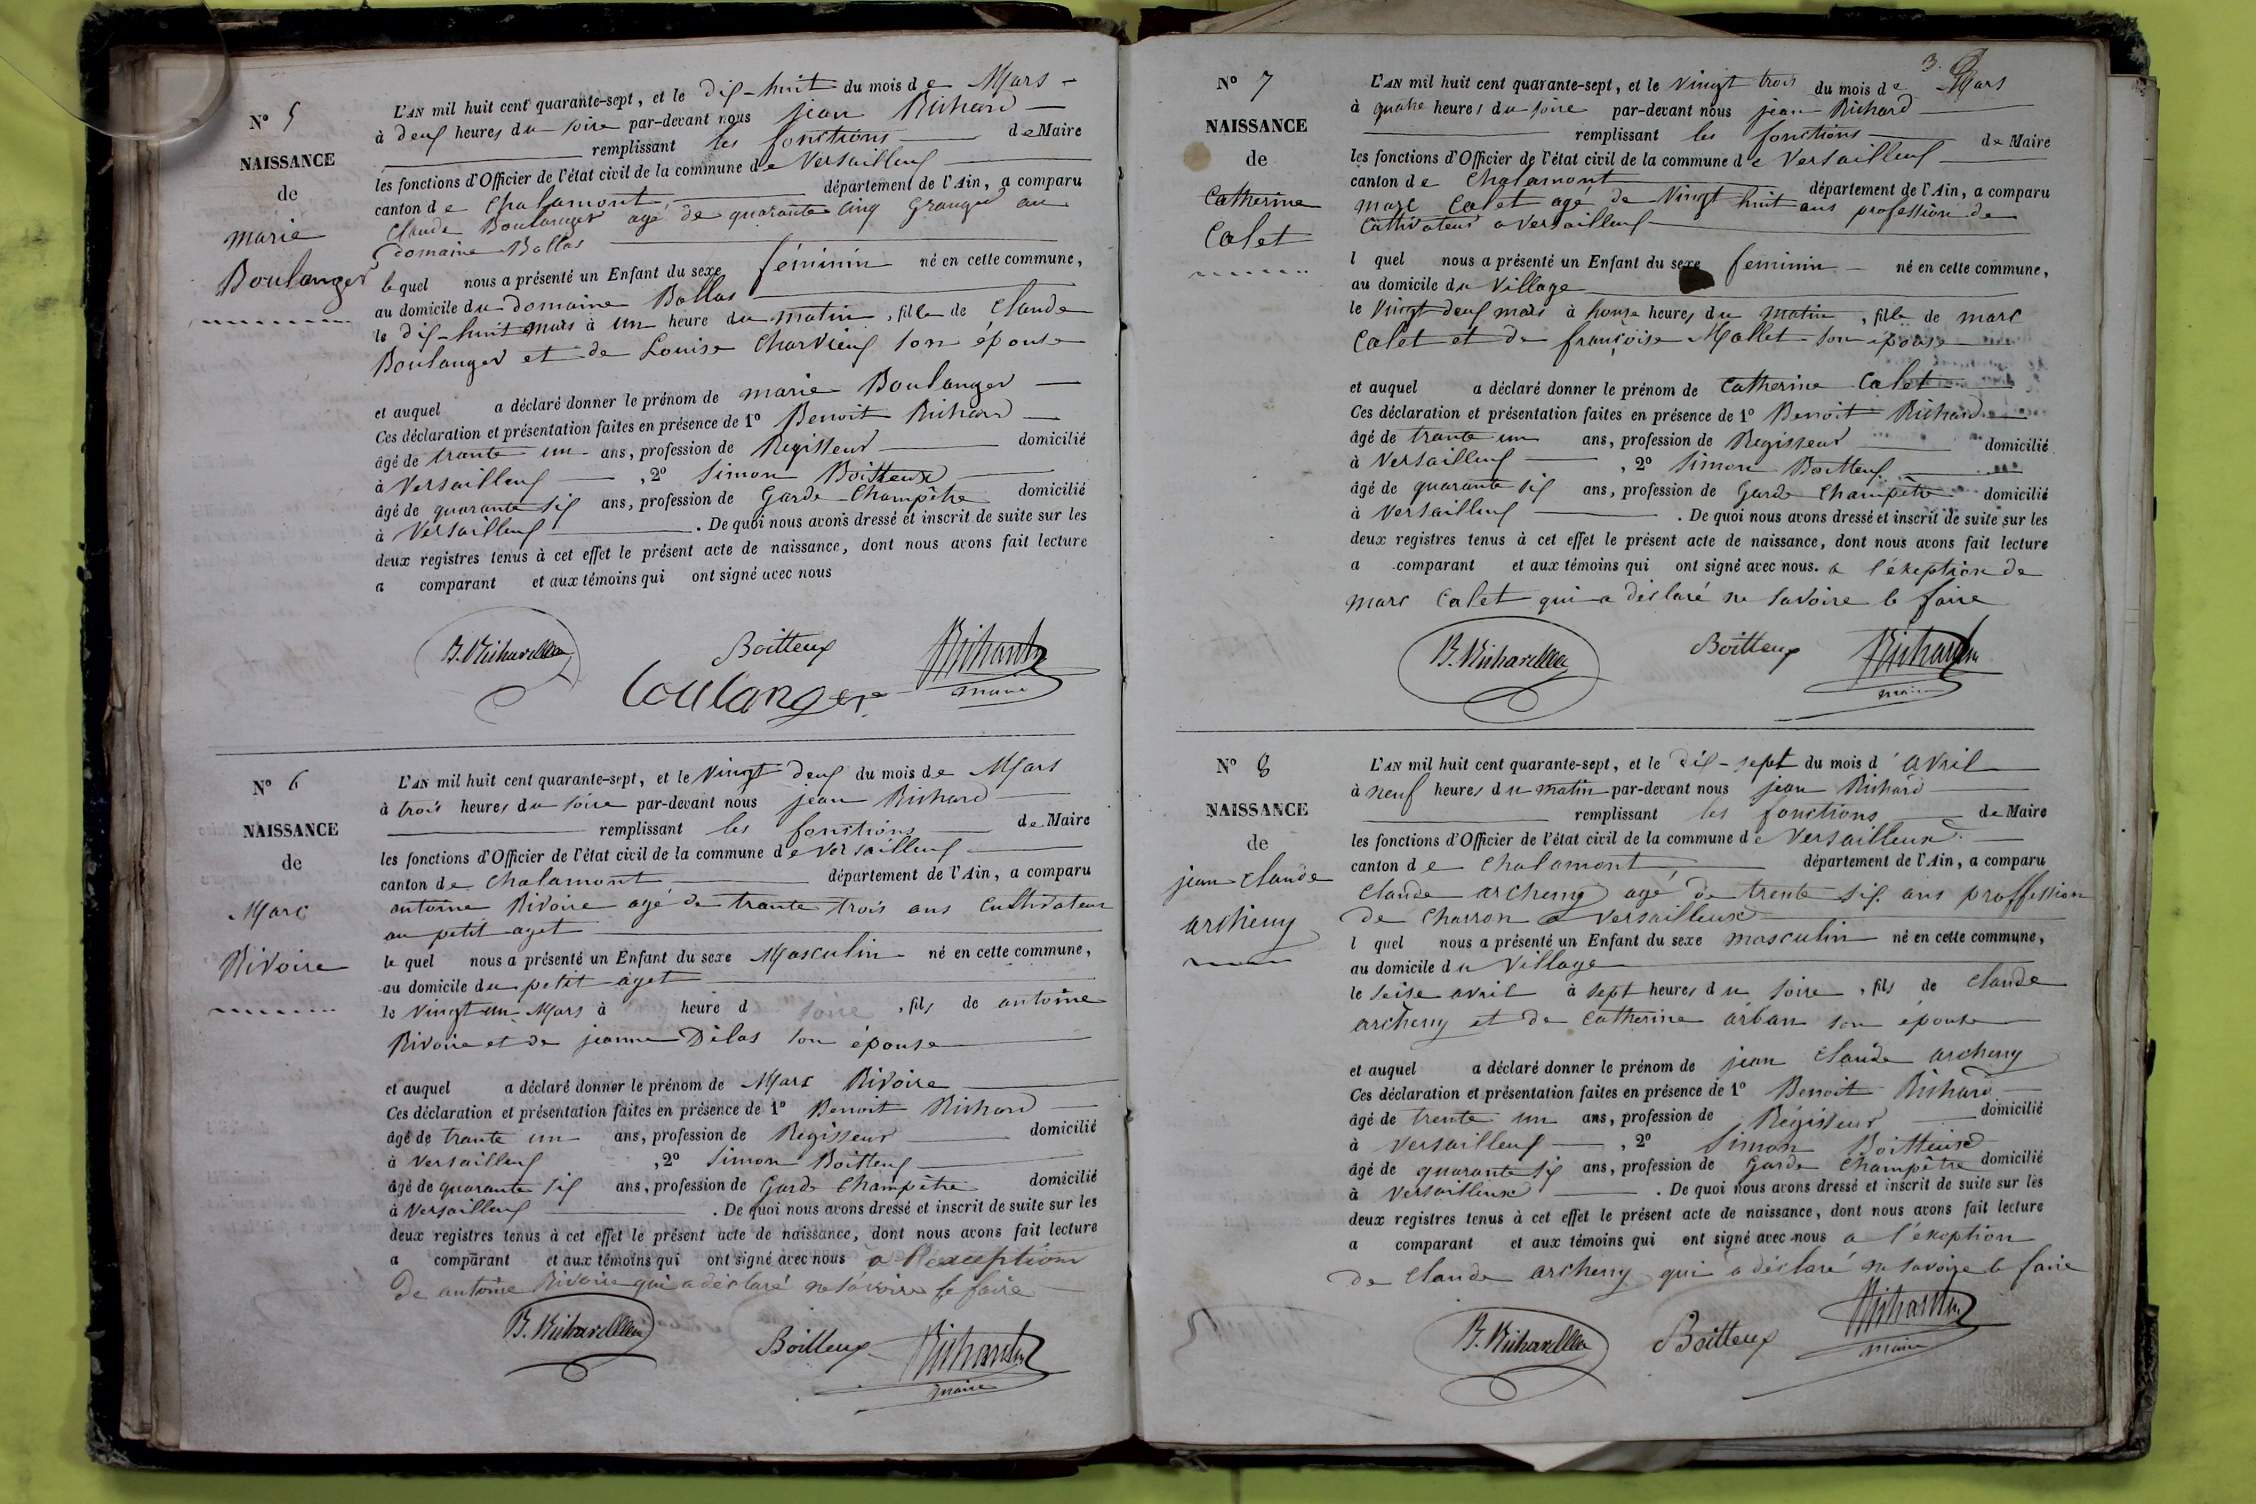 N° 5
NAISSANCE
de
marie
Boulanger
L'AN mil huit cent quarante-sept, et le dix-huit du mois de Mars
à deux heures du soire par-devant nous jean Richard
remplissant les fonctions de Maire
les fonctions d'Officier de l'état civil de la commune de Versailleux
canton de Chalamont, département de l'Ain, a comparu
Claude Boulanger agé de quarante cinq Granger au
domaine Bollas
le quel nous a présenté un Enfant du sexe féminin né en cette commune,
au domicile du domaine Bollas
le dix-huit mars à un heure du matin, fille de Claude
Boulanger et de Louise Charvieux son épouse
et auquel a déclaré donner le prénom de marie Boulanger
Ces déclaration et présentation faites en présence de 1° Benoit Richard
âgé de trante un ans, profession de Regisseur domicilié
à Versailleux, 2° Simon Boitteux
âgé de quarante six ans, profession de Garde Champêtre domicilié
à Versailleux. De quoi nous avons dressé et inscrit de suite sur les
deux registres tenus à cet effet le présent acte de naissance, dont nous avons fait lecture
a comparant et aux témoins qui ont signé avec nous
Boitteux
boulanger
maire
N° 6
NAISSANCE
de
Marc
Rivoire
L'AN mil huit cent quarante-sept, et le vingt deux du mois de Mars
à trois heures du soire par-devant nous jean Richard
remplissant les fonctions de Maire
les fonctions d'Officier de l'état civil de la commune de Versailleux
canton de Chalamont département de l'Ain, a comparu
antoine Rivoire agé de trante trois ans Cultivateur
au petit aget
le quel nous a présenté un Enfant du sexe Masculin né en cette commune,
au domicile du petit aget
le vingt un Mars à heure d soire, fils de antoine
Rivoire et de jeanne Délas son épouse
et auquel a déclaré donner le prénom de Marc Rivoire
Ces déclaration et présentation faites en présence de 1° Benoit Richard
âgé de trante un ans, profession de Regisseur domicilié
à Versailleux, 2° Simon Boitteux
âgé de quarante six ans, profession de Garde Champêtre domicilié
à Versailleux. De quoi nous avons dressé et inscrit de suite sur les
deux registres tenus à cet effet le présent acte de naissance, dont nous avons fait lecture
a comparant et aux témoins qui ont signé avec nous a l'exception
De antoine Rivoire qui a déclaré ne savoire le faire
Boitteux
maire
3.
N° 7
NAISSANCE
de
Catherine
Calet
L'AN mil huit cent quarante-sept, et le vingt trois du mois de Mars
à quatre heures du soire par-devant nous jean Richard
remplissant les fonctions de Maire
les fonctions d'Officier de l'état civil de la commune de Versailleux
canton de Chalamont département de l'Ain, a comparu
marc Calet agé de vingt huit ans profession de
Cultivateur a Versailleux
l quel nous a présenté un Enfant du sexe feminin né en cette commune,
au domicile du Village
le vingt deux mars à honze heures du matin, fille de marc
Calet et de françoise Mallet son épouse
et auquel a déclaré donner le prénom de Catherine Calet
Ces déclaration et présentation faites en présence de 1° Benoit Richard
âgé de trante un ans, profession de Regisseur domicilié
à Versailleux, 2° Simon Boitteux
âgé de quarante six ans, profession de Garde Champêtre domicilié
à Versailleux. De quoi nous avons dressé et inscrit de suite sur les
deux registres tenus à cet effet le présent acte de naissance, dont nous avons fait lecture
a comparant et aux témoins qui ont signé avec nous. a l'éxeption de
Marc Calet qui a déclaré ne savoire le faire
Boitteux
maire
N° 8
NAISSANCE
de
jean Claude
archeny
L'AN mil huit cent quarante-sept, et le dix-sept du mois d'avril
à neuf heures du matin par-devant nous jean Richard
remplissant les fonctions de Maire
les fonctions d'Officier de l'état civil de la commune de Versailleux
canton de Chalamont, département de l'Ain, a comparu
Claude archeny agé de trente six ans proffession
de Charron a Versailleux
l quel nous a présenté un Enfant du sexe masculin né en cette commune,
au domicile du Village
le seise avril à sept heures du soire, fils de Claude
archeny et de Catherine arban son épouse
et auquel a déclaré donner le prénom de jean Claude archeny
Ces déclaration et présentation faites en présence de 1° Benoit Richard
âgé de trente un ans, profession de Régisseur domicilié
à Versailleux, 2° Simon Boitteux
âgé de quarante six ans, profession de Garde Champêtre domicilié
à Versailleux. De quoi nous avons dressé et inscrit de suite sur les
deux registres tenus à cet effet le présent acte de naissance, dont nous avons fait lecture
a comparant et aux témoins qui ont signé avec nous a l'éxeption
de Claude archeny qui a déclaré ne savoire le faire
Boitteux
maire